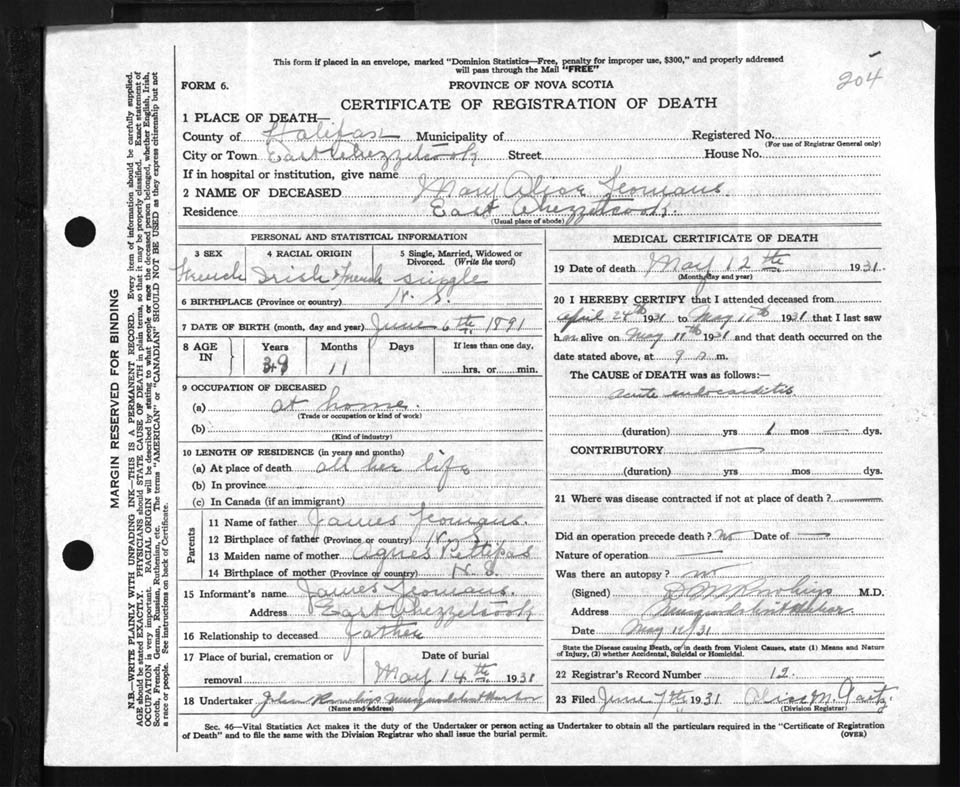 This form if placed in an envelope, marked "Dominion Statistics—Free, penalty for improper use, $300," and properly addressed
will pass through the Mail "FREE"
204
FORM 6.
PROVINCE OF NOVA SCOTIA
CERTIFICATE OF REGISTRATION OF DEATH
1 PLACE OF DEATH—
County of Halifax Municipality of Registered No.
(For use of Registrar General only)
City or Town East Chezzetcook Street House No.
If in hospital or institution, give name
2 NAME OF DECEASED Mary Alice Yeomans.
Residence East Chezzetcook.
(Usual place of abode)
PERSONAL AND STATISTICAL INFORMATION
3 SEX 4 RACIAL ORIGIN 5 Single, Married, Widowed or Divorced. (Write the word)
French Irish & French single
6 BIRTHPLACE (Province or country) N. S.
7 DATE OF BIRTH (month, day and year) June 6th 1891
8 AGE IN Years Months Days If less than one day,
39 11 hrs. or min.
9 OCCUPATION OF DECEASED
(a) at home.
(Trade or occupation or kind of work)
(b)
(Kind of industry)
10 LENGTH OF RESIDENCE (in years and months)
(a) At place of death all her life
(b) In province
(c) In Canada (if an immigrant)
Parents
11 Name of father James Yeomans.
12 Birthplace of father (Province or country) N. S.
13 Maiden name of mother Agnes Pettipas
14 Birthplace of mother (Province or country) N. S.
15 Informant's name James Yeomans.
Address East Chezzetcook
16 Relationship to deceased father
17 Place of burial, cremation or Date of burial
removal May 14th 1931
18 Undertaker John Rawlings Musquodoboit Harbor
(Name and address)
MEDICAL CERTIFICATE OF DEATH
19 Date of death May 12th 1931.
(Month, day and year)
20 I HEREBY CERTIFY that I attended deceased from
April 24th 1931 to May 11th 1931 that I last saw
her alive on May 11th 1931 and that death occurred on the
date stated above, at 9 a m.
The CAUSE of DEATH was as follows:—
acute endocarditis
(duration) yrs 1 mos dys.
CONTRIBUTORY
(duration) yrs mos dys.
21 Where was disease contracted if not at place of death?
Did an operation precede death? no Date of —
Nature of operation —
Was there an autopsy? no
(Signed) Rawlings M.D.
Address Musquodoboit Harbor
Date May 12/31
State the Disease causing Death, or in death from Violent Causes, state (1) Means and Nature
of Injury, (2) whether Accidental, Suicidal or Homicidal.
22 Registrar's Record Number 12.
23 Filed June 7th 1931 Alice M.
(Division Registrar)
Sec. 46—Vital Statistics Act makes it the duty of the Undertaker or person acting as Undertaker to obtain all the particulars required in the "Certificate of Registration
of Death" and to file the same with the Division Registrar who shall issue the burial permit.
(OVER)
MARGIN RESERVED FOR BINDING
N.B.—WRITE PLAINLY WITH UNFADING INK—THIS IS A PERMANENT RECORD. Every item of information should be carefully supplied.
AGE should be stated EXACTLY. PHYSICIANS should STATE CAUSE OF DEATH in plain terms, so that it may be properly classified. Exact statement of
OCCUPATION is very important. RACIAL ORIGIN will be described by stating to what people or race the deceased person belonged, whether English, Irish,
Scotch, French, German, Russian, Ruthenian, etc. The terms "AMERICAN" or "CANADIAN" SHOULD NOT BE USED as they express citizenship but not
a race or people. See instructions on back of Certificate.